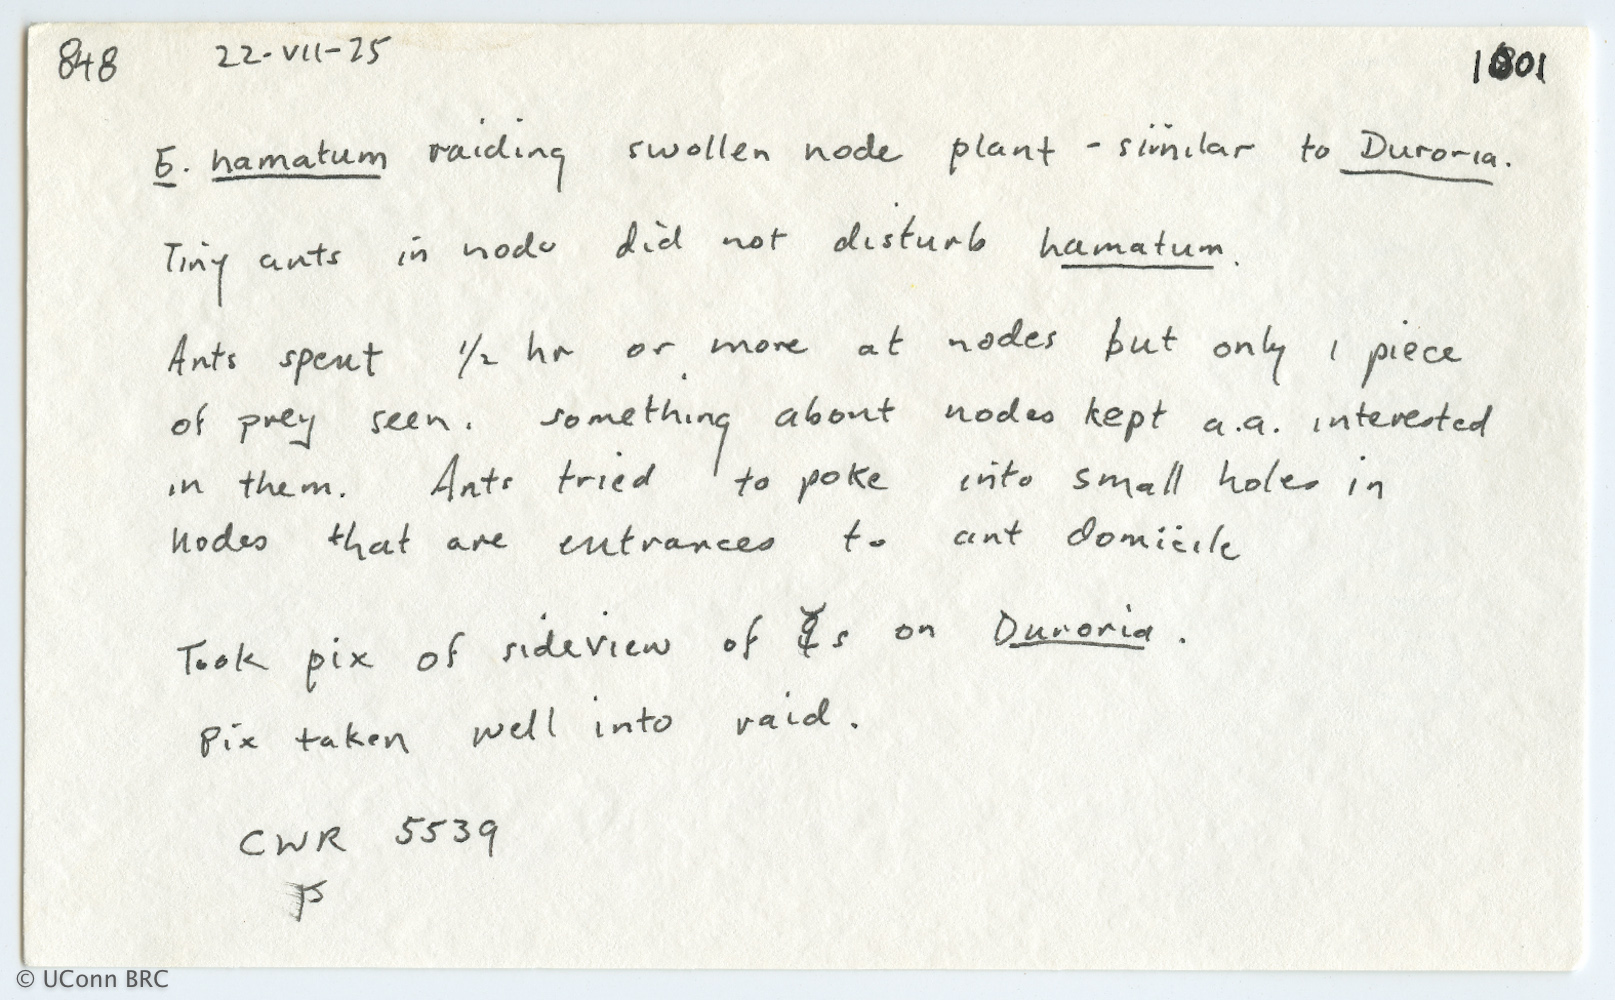 848 22-VII-75 1801
E. hamatum raiding swollen node plant - similar to Duroria.
Tiny ants in node did not disturb hamatum.
Ants spent 1/2 hr or more at nodes but only 1 piece
of prey seen. Something about nodes kept a.a. interested
in them. Ants tried to poke into small holes in
nodes that are entrances to ant domicile
Took pix of sideview of ☿s on Duroria.
Pix taken well into raid.
CWR 5539
© UConn BRC